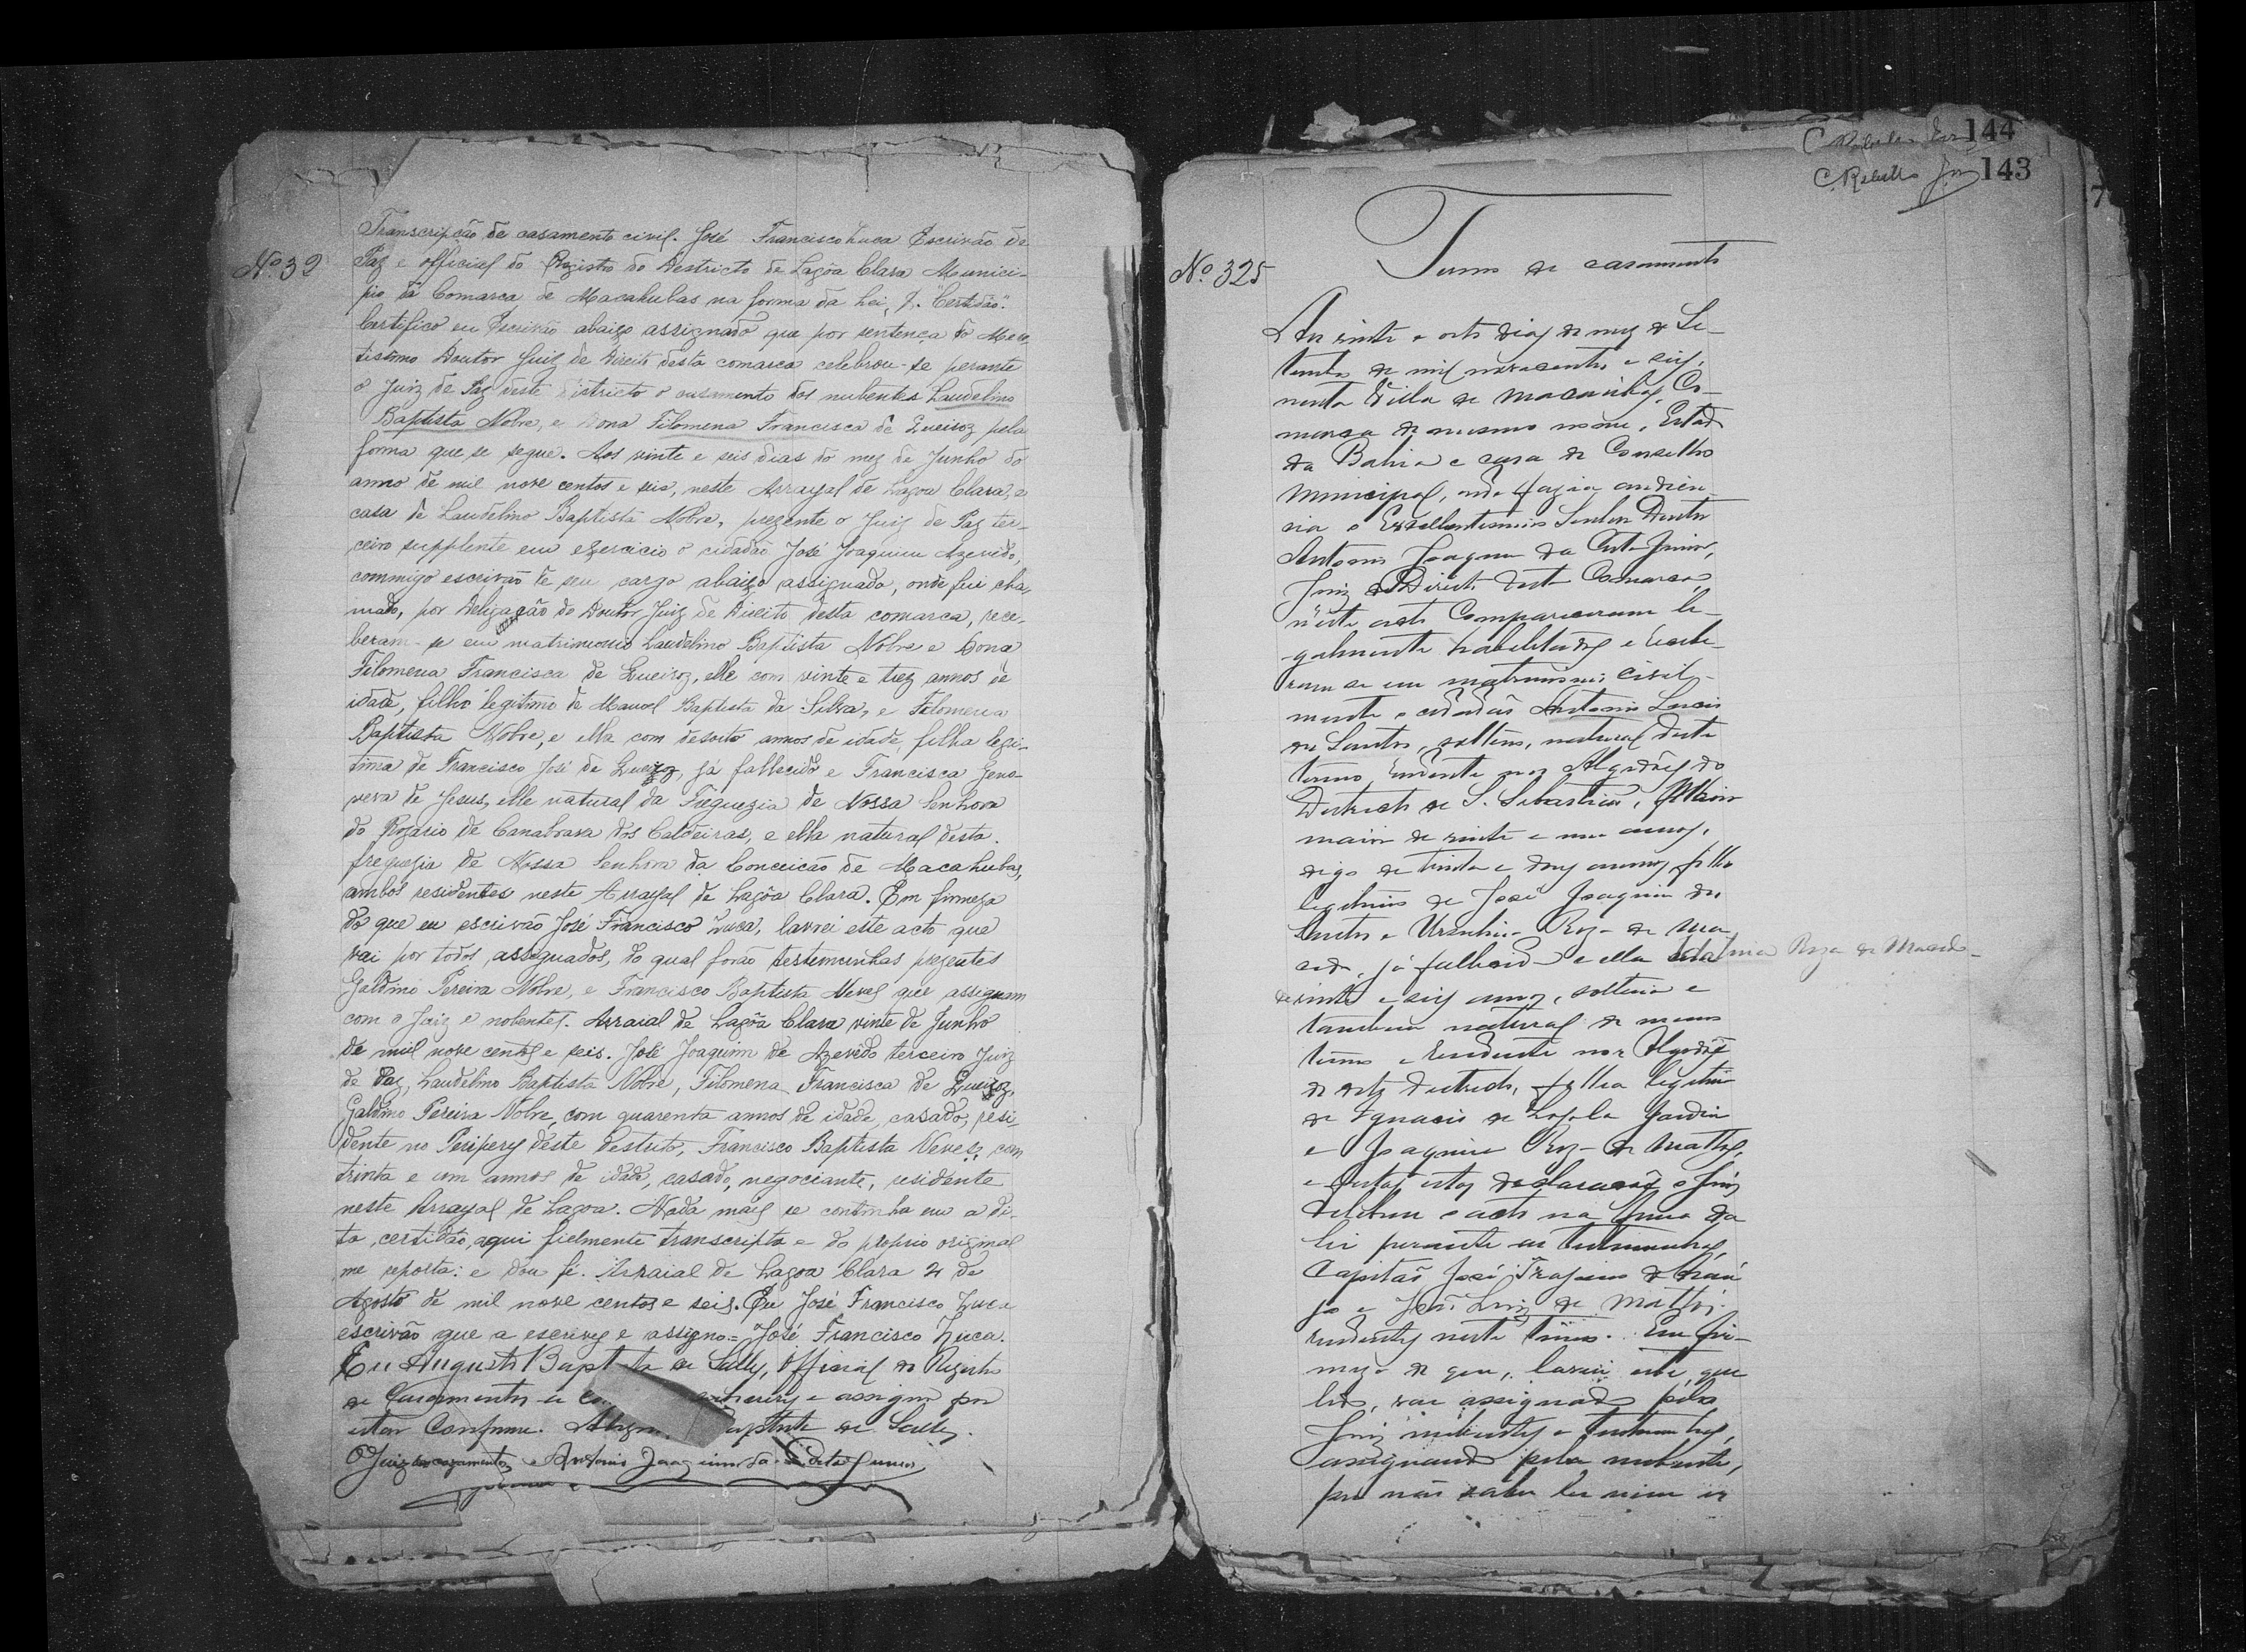 Nº 32
Transcripção de casamento civil. José Francisco Zuca Escrivão de
Paz e official do Registro do Destricto de Lagôa Clara Munici-
pio da Comarca de Macahubas na forma da Lei, &. "Certidão".
Certifico eu Escrivão abaixo assignado que por sentença do Mere-
tissimo Doutor Juiz de Direito desta comarca celebrou-se perante
o Juiz de Paz deste Districto o casamento dos nubentes Laudelino
Baptista Nobre, e Dona Filomena Francisca de Queiroz pela
forma que se segue. Aos vinte e seis dias do mez de Junho do
anno de mil nove centos e seis, neste Arrayal de Lagoa Clara, e
casa de Laudelino Baptista Nobre, prezente o Juiz de Paz ter-
ceiro supplente em exercicio o cidadão José Joaquim Azevedo,
commigo escrivão de seu cargo abaixo assignado, onde fui cha-
mado, por Deligação do Doutor Juiz de Direito desta comarca, rece-
beram-se em matrimonio Laudelino Baptista Nobre e Dona
Filomena Francisca de Queiroz, elle com vinte e trez annos de
idade, filho legitimo de Manoel Baptista da Silva, e Filomena
Baptista Nobre, e ella com desoito annos de idade, filha legi-
tima de Francisco José de Queiroz, já fallecido e Francisca Geno-
veva de Jesus, elle natural da Freguezia de Nossa Senhora
do Rozario de Canabrava dos Caldeiras, e ella natural desta
freguezia de Nossa Senhora da Conceicão de Macahubas,
ambos residentes neste Arrayal de Lagôa Clara. Em firmeza
do que eu escrivão José Francisco Zuca, lavrei este acto que
vai por todos assignados, do qual forão testemunhas prezentes
Galdino Pereira Nobre, e Francisco Baptista Neves que assignam
com o Juiz e nobentes. Arraial de Lagôa Clara vinte de Junho
de mil nove centos e seis. José Joaquim de Azevêdo terceiro Juiz
de Paz, Laudelino Baptista Nobre, Filomena Francisca de Queiroz,
Galdino Pereira Nobre, com quarenta annos de idade, casado, resi-
dente no Peripery deste destrito, Francisco Baptista Neves, com
trinta e um annos de idade, casado, negociante, residente
neste Arrayal de Lagoa. Nada mais se continha em a di-
ta certidão, aqui fielmente transcripta e do proprio original
me reporta: e dou fé. Arraial de Lagoa Clara 4 de
Agosto de mil nove centos e seis. Eu José Francisco Zuca
escrivão que a escrevy e assigno = José Francisco Zuca.
Eu Augusto Baptista de Official do Registro
de Casamentos e assigno por
estar Conforme.
O Juiz dos cazamentos Antonio Joaquim da Costa Junior
144
C. Rebello 143
Nº 325
Termo de casamento
Aos vinte e oito dias do mez de Se-
tembro de mil novecentos e seis,
nesta Villa de Macaúbas, Co-
marca do mesmo nome, Estado
da Bahia e casa do Conselho
Municipal, onde fazia audien-
cia o Excellentissimo Senhor Doutor
Antonio Joaquim da Costa Junior,
Juiz de Direito desta Comarca,
n'este acto Compareceram le-
galmente habelitados e recebe-
ram-se em matrimonio civil-
mente o cidadão Antonio
dos Santos, solteiro, natural deste
termo, residente nos Algodões do
Districto de S. Sebastião,
maior de vinte e um annos,
digo de trinta e dous annos, filho
legitimo de José Joaquim dos
Santos e Roza de Ma-
cedo, já fallecida e ella Roza de Macedo
de vinte e seis annos, solteira e
tambem natural do mesmo
termo e residente nos Algodões
do dito districto, filha legitima
de Ignacio de Loyola Jardim
e Joaquina Roza de Mattos,
e feitas estas declarações o Juiz
celebrou o acto na forma da
lei perante as testemunhas,
Capitão José Trajano de Arau-
jo e José Luiz de Mattos
residentes neste termo. Em fir-
meza do que, lavrei este, que
lido, vae assignado pelo
Juiz nubentes e testemunhas,
assignando pela nubente,
por não saber ler nem es